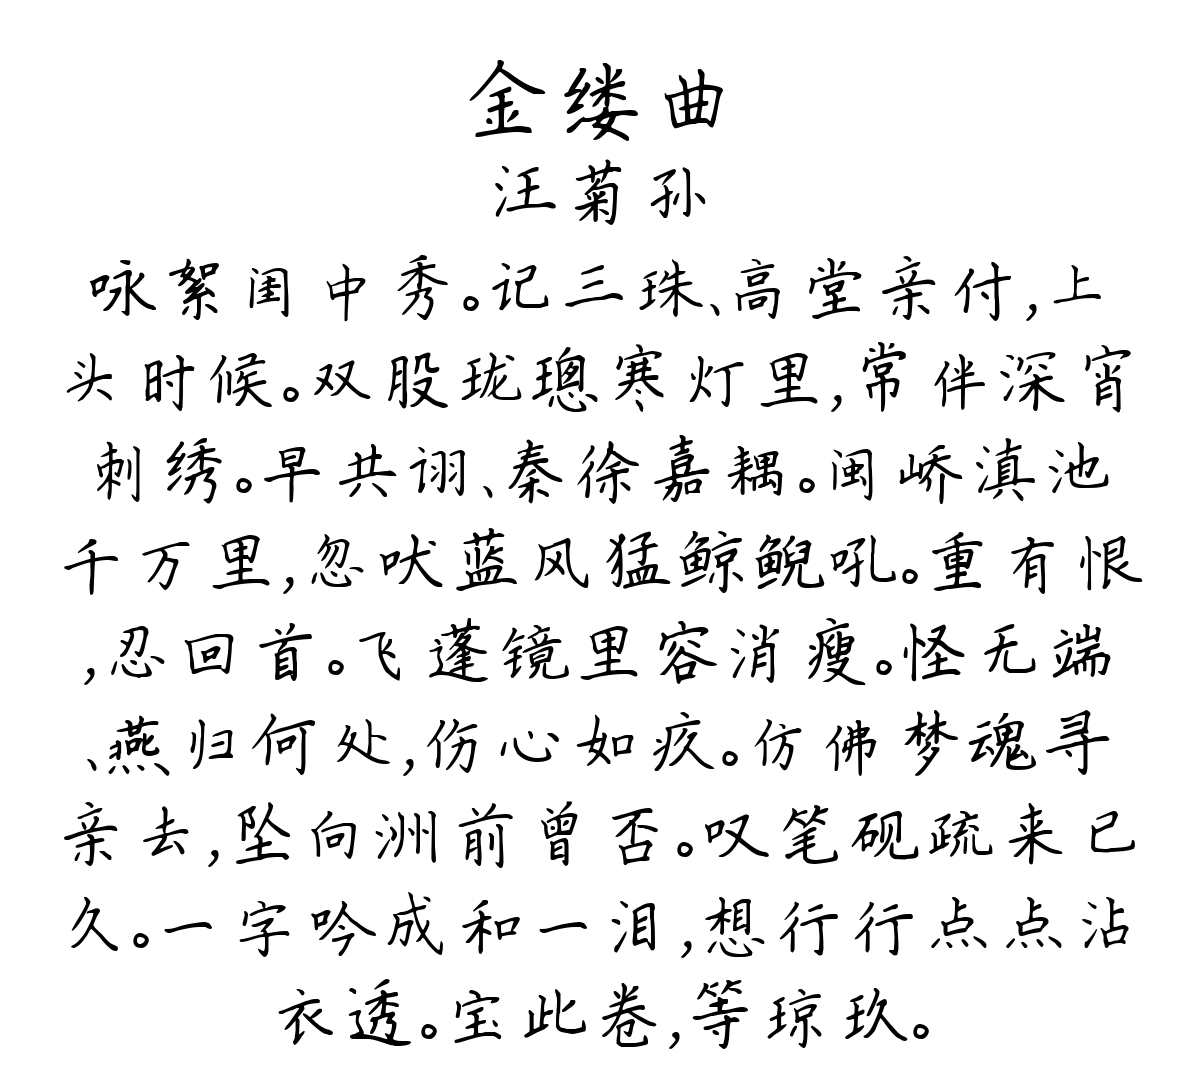 金缕曲
汪菊孙
咏絮闺中秀。记三珠、高堂亲付,上
头时候。双股珑璁寒灯里,常伴深宵
刺绣。早共诩、秦徐嘉耦。闽峤滇池
千万里,忽吠蓝风猛鲸鲵吼。重有恨
,忍回首。飞蓬镜里容消瘦。怪无端
、燕归何处,伤心如疚。仿佛梦魂寻
亲去,坠向洲前曾否。叹笔砚疏来已
久。一字吟成和一泪,想行行点点沾
衣透。宝此卷,等琼玖。